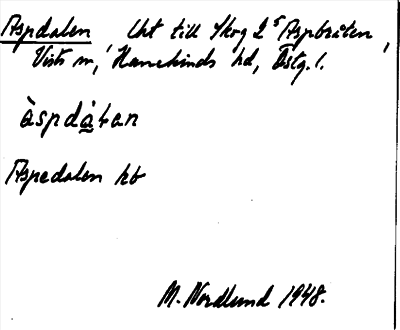 Aspdalen, Lht till Skog 2⁵ Aspbråten,
Vists sn, Hanekinds hd, Östg. l.
àspdàɫan
Aspedalen kb
M. Nordlund 1948.